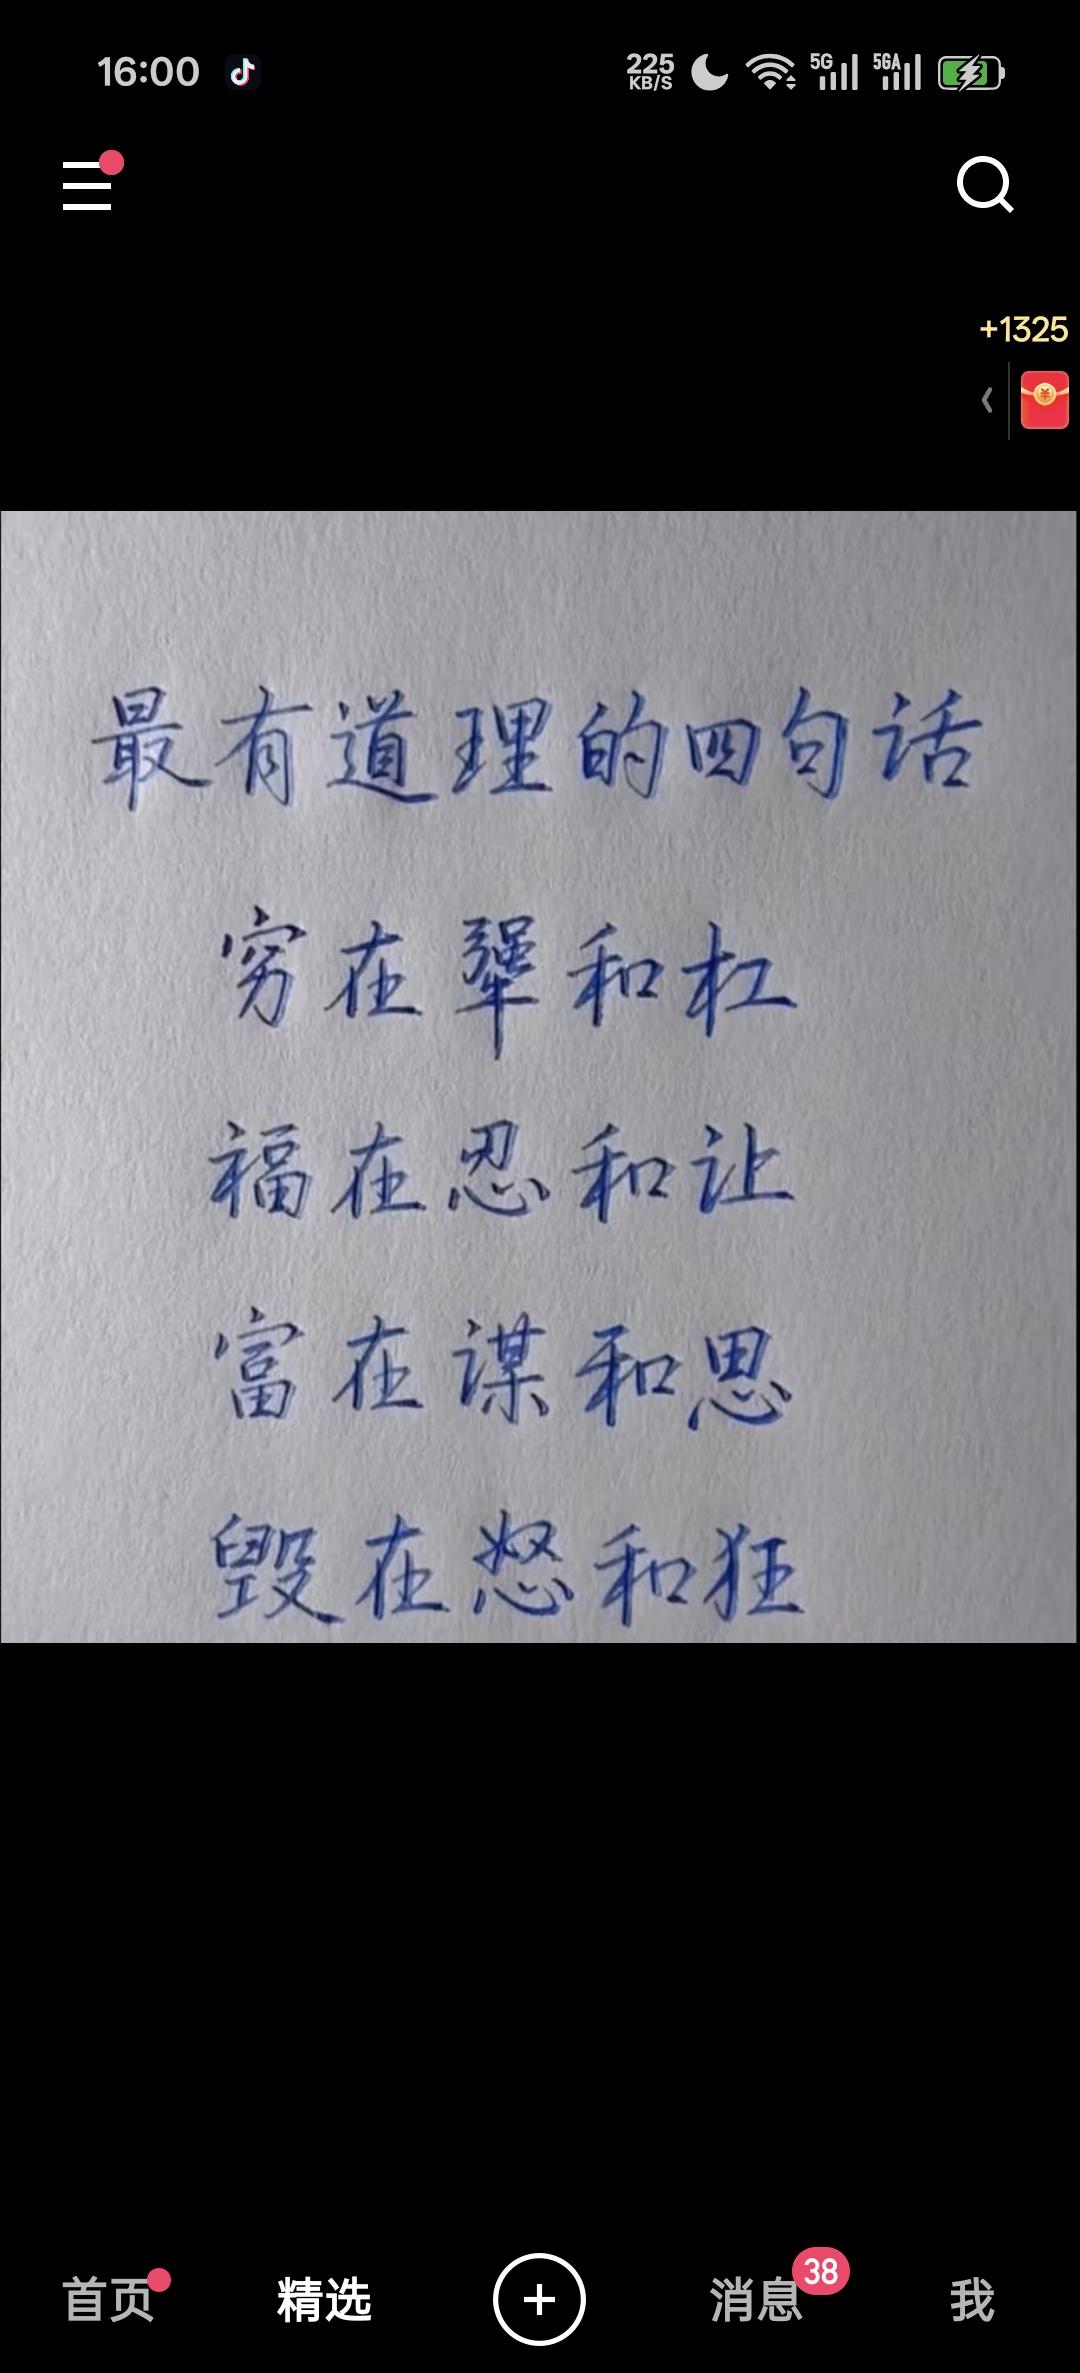 16:00
225 KB/S 5G 5GA
+1325
最有道理的四句话
穷在犟和杠
福在忍和让
富在谋和思
毁在怒和狂
首页 精选 消息 38 我